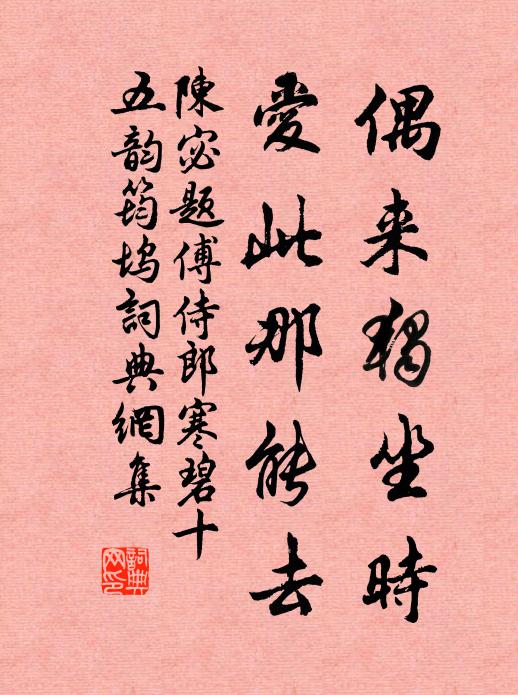 偶来獨坐時
愛此那能去
陳宓題傅侍郎寒碧十
五韵筠塢詞典網集
詞典網印